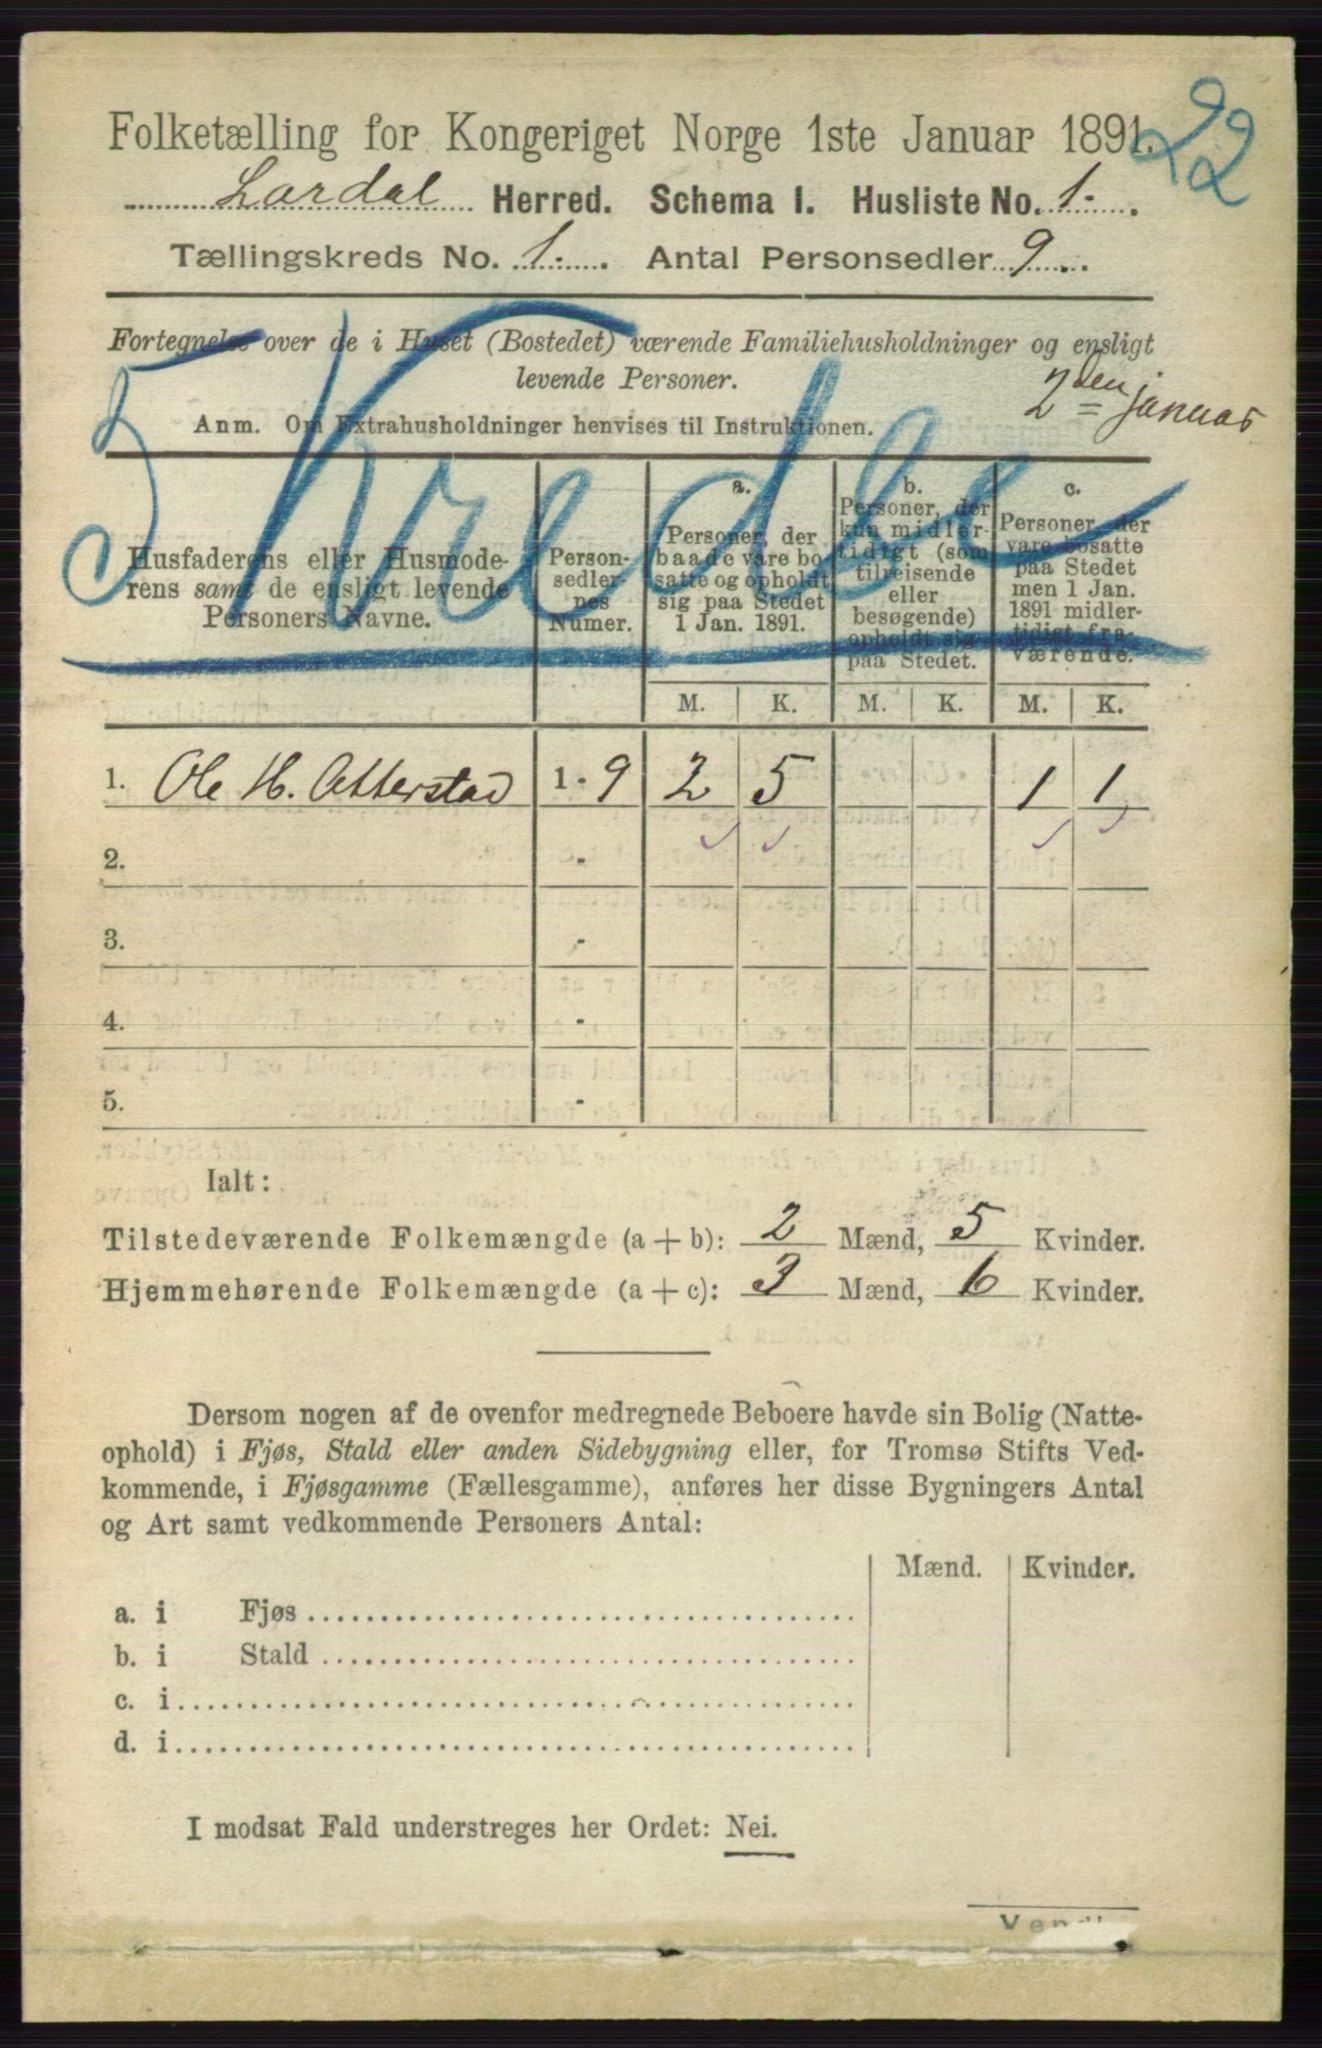 22
Folketælling for Kongeriget Norge 1ste Januar 1891.
Lardal Herred. Schema I. Husliste No. 1.
Tællingskreds No. 1. Antal Personsedler 9.
Fortegnelse over de i Huset (Bostedet) værende Familiehusholdninger og ensligt
levende Personer.
2den januar
Anm. Om Extrahusholdninger henvises til Instruktionen.
5 Kredse
Husfaderens eller Husmode-
rens samt de ensligt levende
Personers Navne.
Person-
sedler-
nes
Numer.
a.
Personer, der
baade vare bo-
satte og opholdt
sig paa Stedet
1 Jan. 1891.
b.
Personer, der
kun midler-
tidigt (som
tilreisende
eller
besøgende)
opholdt sig
paa Stedet.
c.
Personer, der
vare bosatte
paa Stedet
men 1 Jan.
1891 midler-
tidigt fra-
værende.
M. K. M. K. M. K.
1. Ole H. Atterstad 1 - 9 2 5 1 1
2. -
3. -
4. -
5. -
Ialt:
Tilstedeværende Folkemængde (a + b): 2 Mænd, 5 Kvinder.
Hjemmehørende Folkemængde (a + c): 3 Mænd, 6 Kvinder.
Dersom nogen af de ovenfor medregnede Beboere havde sin Bolig (Natte-
ophold) i Fjøs, Stald eller anden Sidebygning eller, for Tromsø Stifts Ved-
kommende, i Fjøsgamme (Fællesgamme), anføres her disse Bygningers Antal
og Art samt vedkommende Personers Antal:
Mænd. Kvinder.
a. i Fjøs
b. i Stald
c. i
d. i
I modsat Fald understreges her Ordet: Nei.